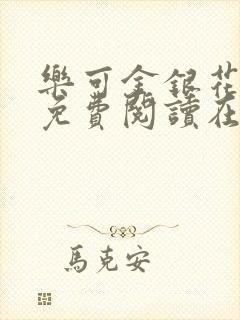 樂可金銀花
免費閱讀在
馬克安